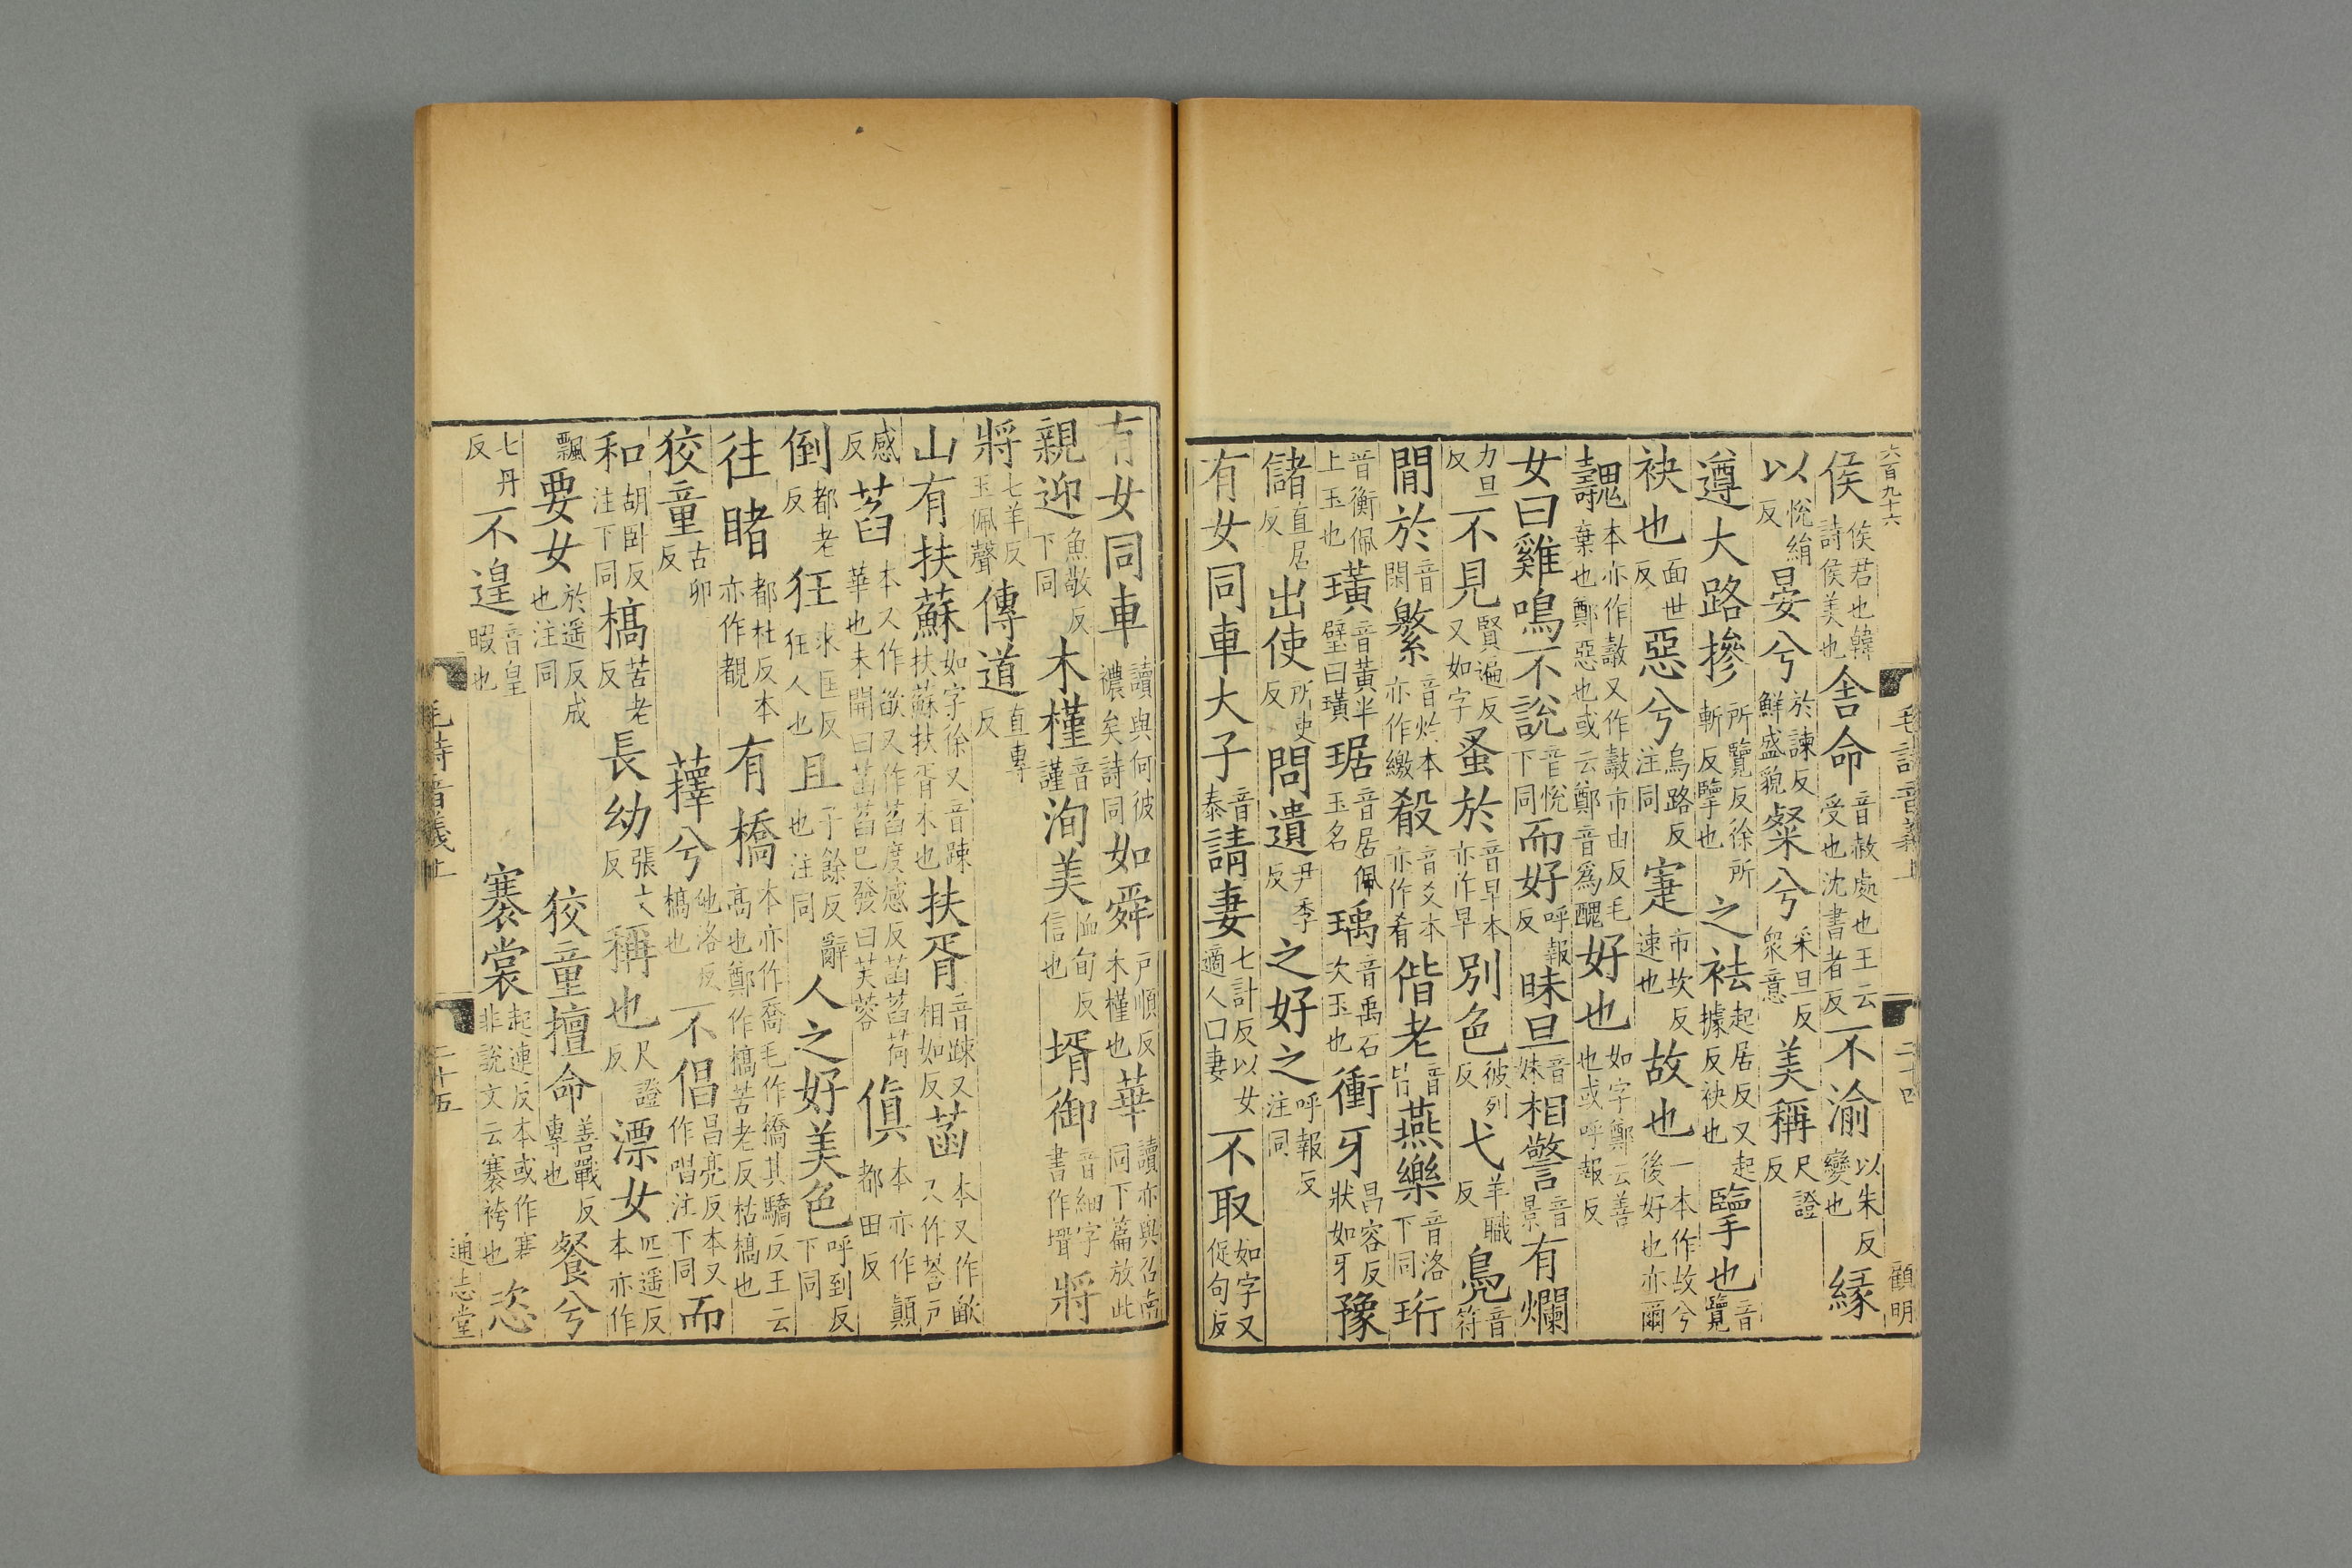 六百九十六 毛詩音義上 二十四 顧明
侯侯君也韓詩侯美也舍命音赦處也王云受也沈書者反不渝以朱反變也緣
以悅絹反晏兮於諫反鮮盛貌粲兮采旦反衆意美稱尺證反
遵大路摻所覽反徐所斬反擥也之袪起居反又起據反袂也擥也音覽
袂也面世反惡兮烏路反注同寁市坎反速也故也一本作故兮後好也亦爾
魗本亦作𢾭又作𣀘市由反毛棄也鄭惡也或云鄭音爲醜好也如字鄭云善也或呼報反
女曰雞鳴不說音悅下同而好呼報反昧旦音妹相警音景有爛
力旦反不見賢遍反又如字蚤於音早本亦作早別色彼列反弋羊職反鳧音符
閒於音閑繁音灼本亦作繳殽音爻本亦作肴偕老音皆燕樂音洛下同珩
音衡佩上玉也璜音黃半璧曰璜琚音居佩玉名瑀音禹石次玉也衝牙昌容反狀如牙豫
儲直居反出使所吏反問遺尹季反之好之呼報反注同
有女同車大子音泰請妻七計反以女適人曰妻不取如字又促句反
有女同車讀與何彼襛矣詩同如舜尸順反木槿也華讀亦與召南同下篇放此
親迎魚敬反下同木槿音謹洵美恤旬反信也壻御音細字書作壻將
將七羊反玉佩聲傳道直專反
山有扶蘇如字徐又音踈扶蘇扶胥木也扶胥音踈又相如反菡本又作歃又作莟戶
感反萏本又作欿又作萏度感反菡萏荷華也未開曰菡萏已發曰芙蓉傎本亦作顛都田反
倒都老反狂求匡反狂人也且子餘反辭也注同人之好美色呼到反下同
往睹都杜反本亦作覩有橋本亦作喬毛作橋其驕反王云高也鄭作槁苦老反枯槁也
狡童古卯反蘀兮他洛反槁也不倡昌亮反本又作唱注下同而
和胡臥反注下同槁苦老反長幼張丈反稱也尺證反漂女匹遥反本亦作
飄要女於遥反成也注同狡童擅命善戰反專也餐兮
七丹反不遑音皇暇也褰裳起連反本或作騫非說文云褰袴也恣
毛詩音義上 二十五 通志堂